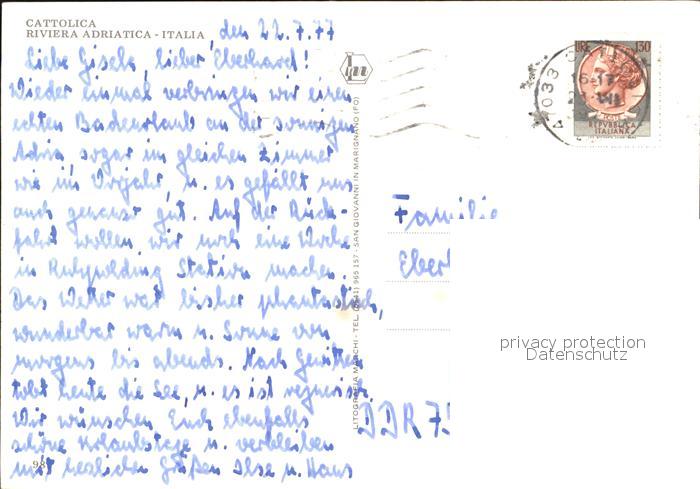 CATTOLICA
RIVIERA ADRIATICA - ITALIA
den 22.7.77
Liebe Gisela, lieber Eberhard!
Wieder einmal verbringen wir einen
echten Badeurlaub an der sonnigen
Adria, sogar im gleichen Zimmer
wie im Vorjahr, u. es gefällt uns
auch genauso gut. Auf der Rück-
fahrt wollen wir noch eine Woche
in Ruhpolding Station machen.
Das Wetter war bisher phantastisch,
wunderbar warm u. Sonne von
morgens bis abends. Nach Gewitter
tobt heute die See, u. es ist regnerisch
Wir wünschen Euch ebenfalls
schöne Urlaubstage u. verbleiben
mit herzlichen Grüßen Ilse u. Hans
98
LITOGRAFIA MARCHI - TEL. (0541) 965 157 - SAN GIOVANNI IN MARIGNANO (FO)
LIRE 130
REPVBBLICA
ITALIANA
033
16-17
Familie
Eber
DDR 75
privacy protection
Datenschutz